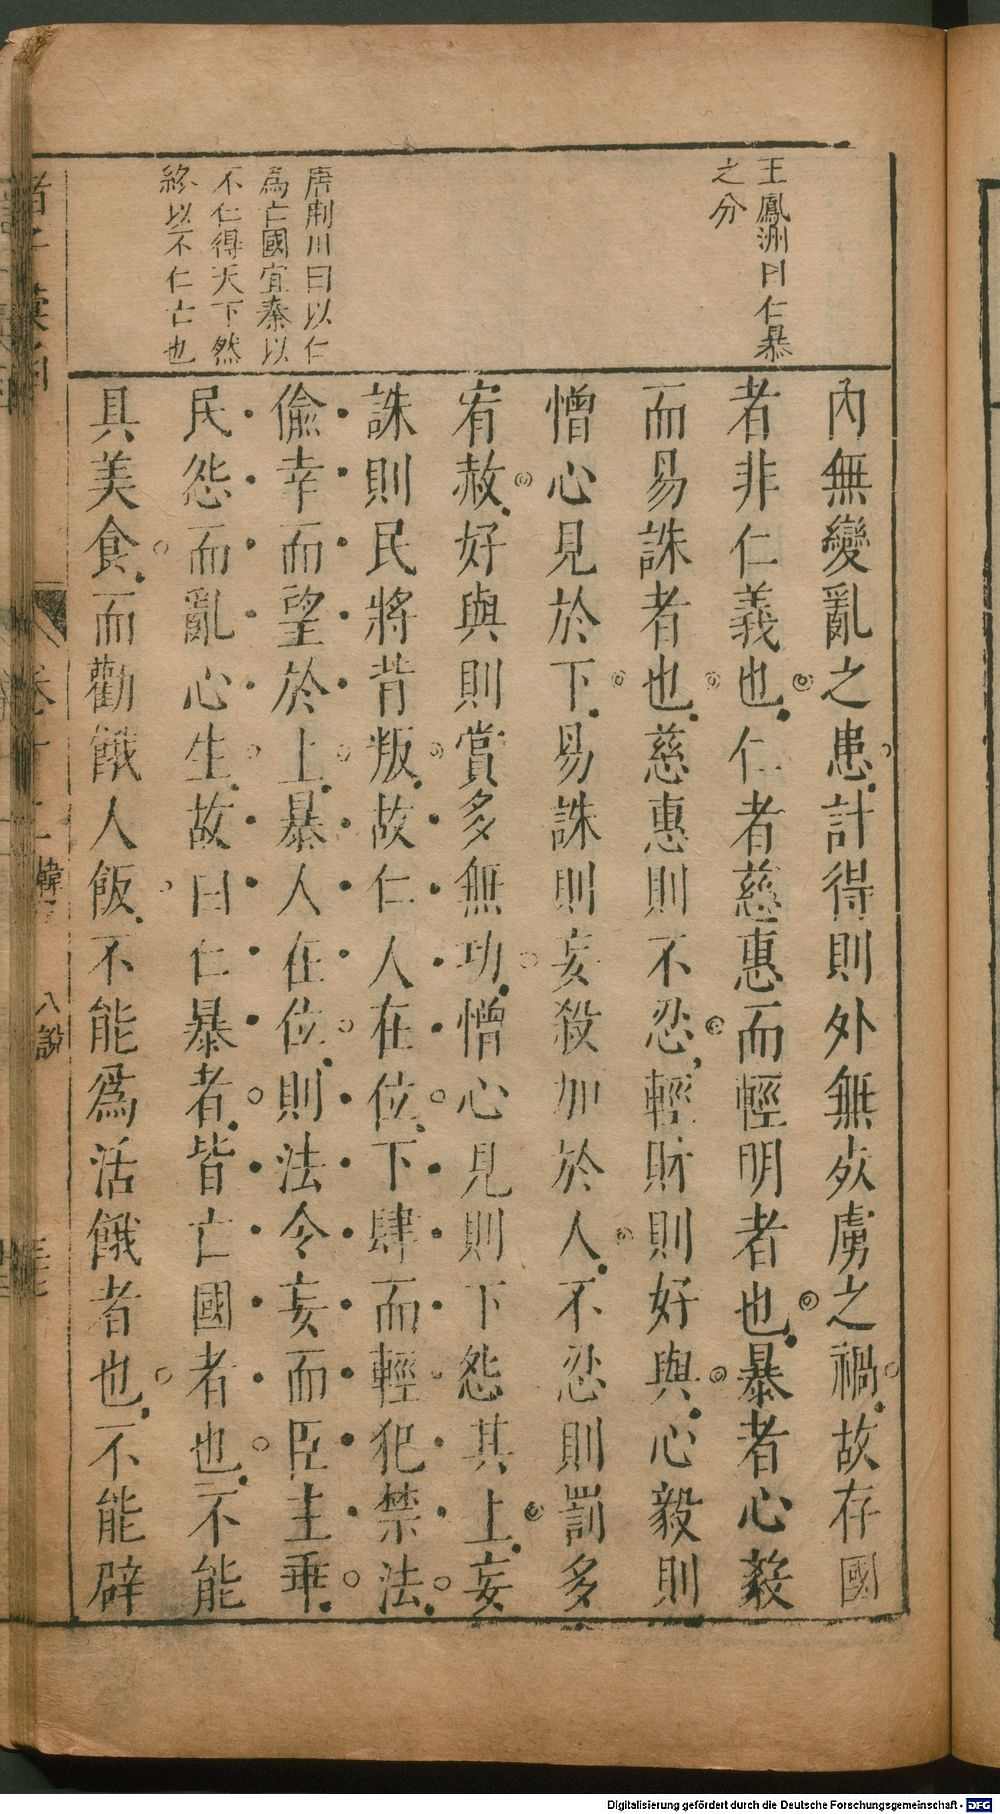 王鳳洲曰仁暴
之分
唐荆川曰以仁
為亡國宜秦以
不仁得天下然
終以不仁亡也
內無變亂之患計得則外無死虜之禍故存國
者非仁義也仁者慈惠而輕明者也暴者心毅
而易誅者也慈惠則不忍輕財則好與心毅則
憎心見於下易誅則妄殺加於人不忍則罰多
宥赦好與則賞多無功憎心見則下怨其上妄
誅則民將背叛故仁人在位下肆而輕犯禁法
偷幸而望於上暴人在位則法令妄而臣主乖
民怨而亂心生故曰仁暴者皆亡國者也不能
具美食而勸餓人飯不能爲活餓者也不能辟
韓子
八說
Digitalisierung gefördert durch die Deutsche Forschungsgemeinschaft - DFG